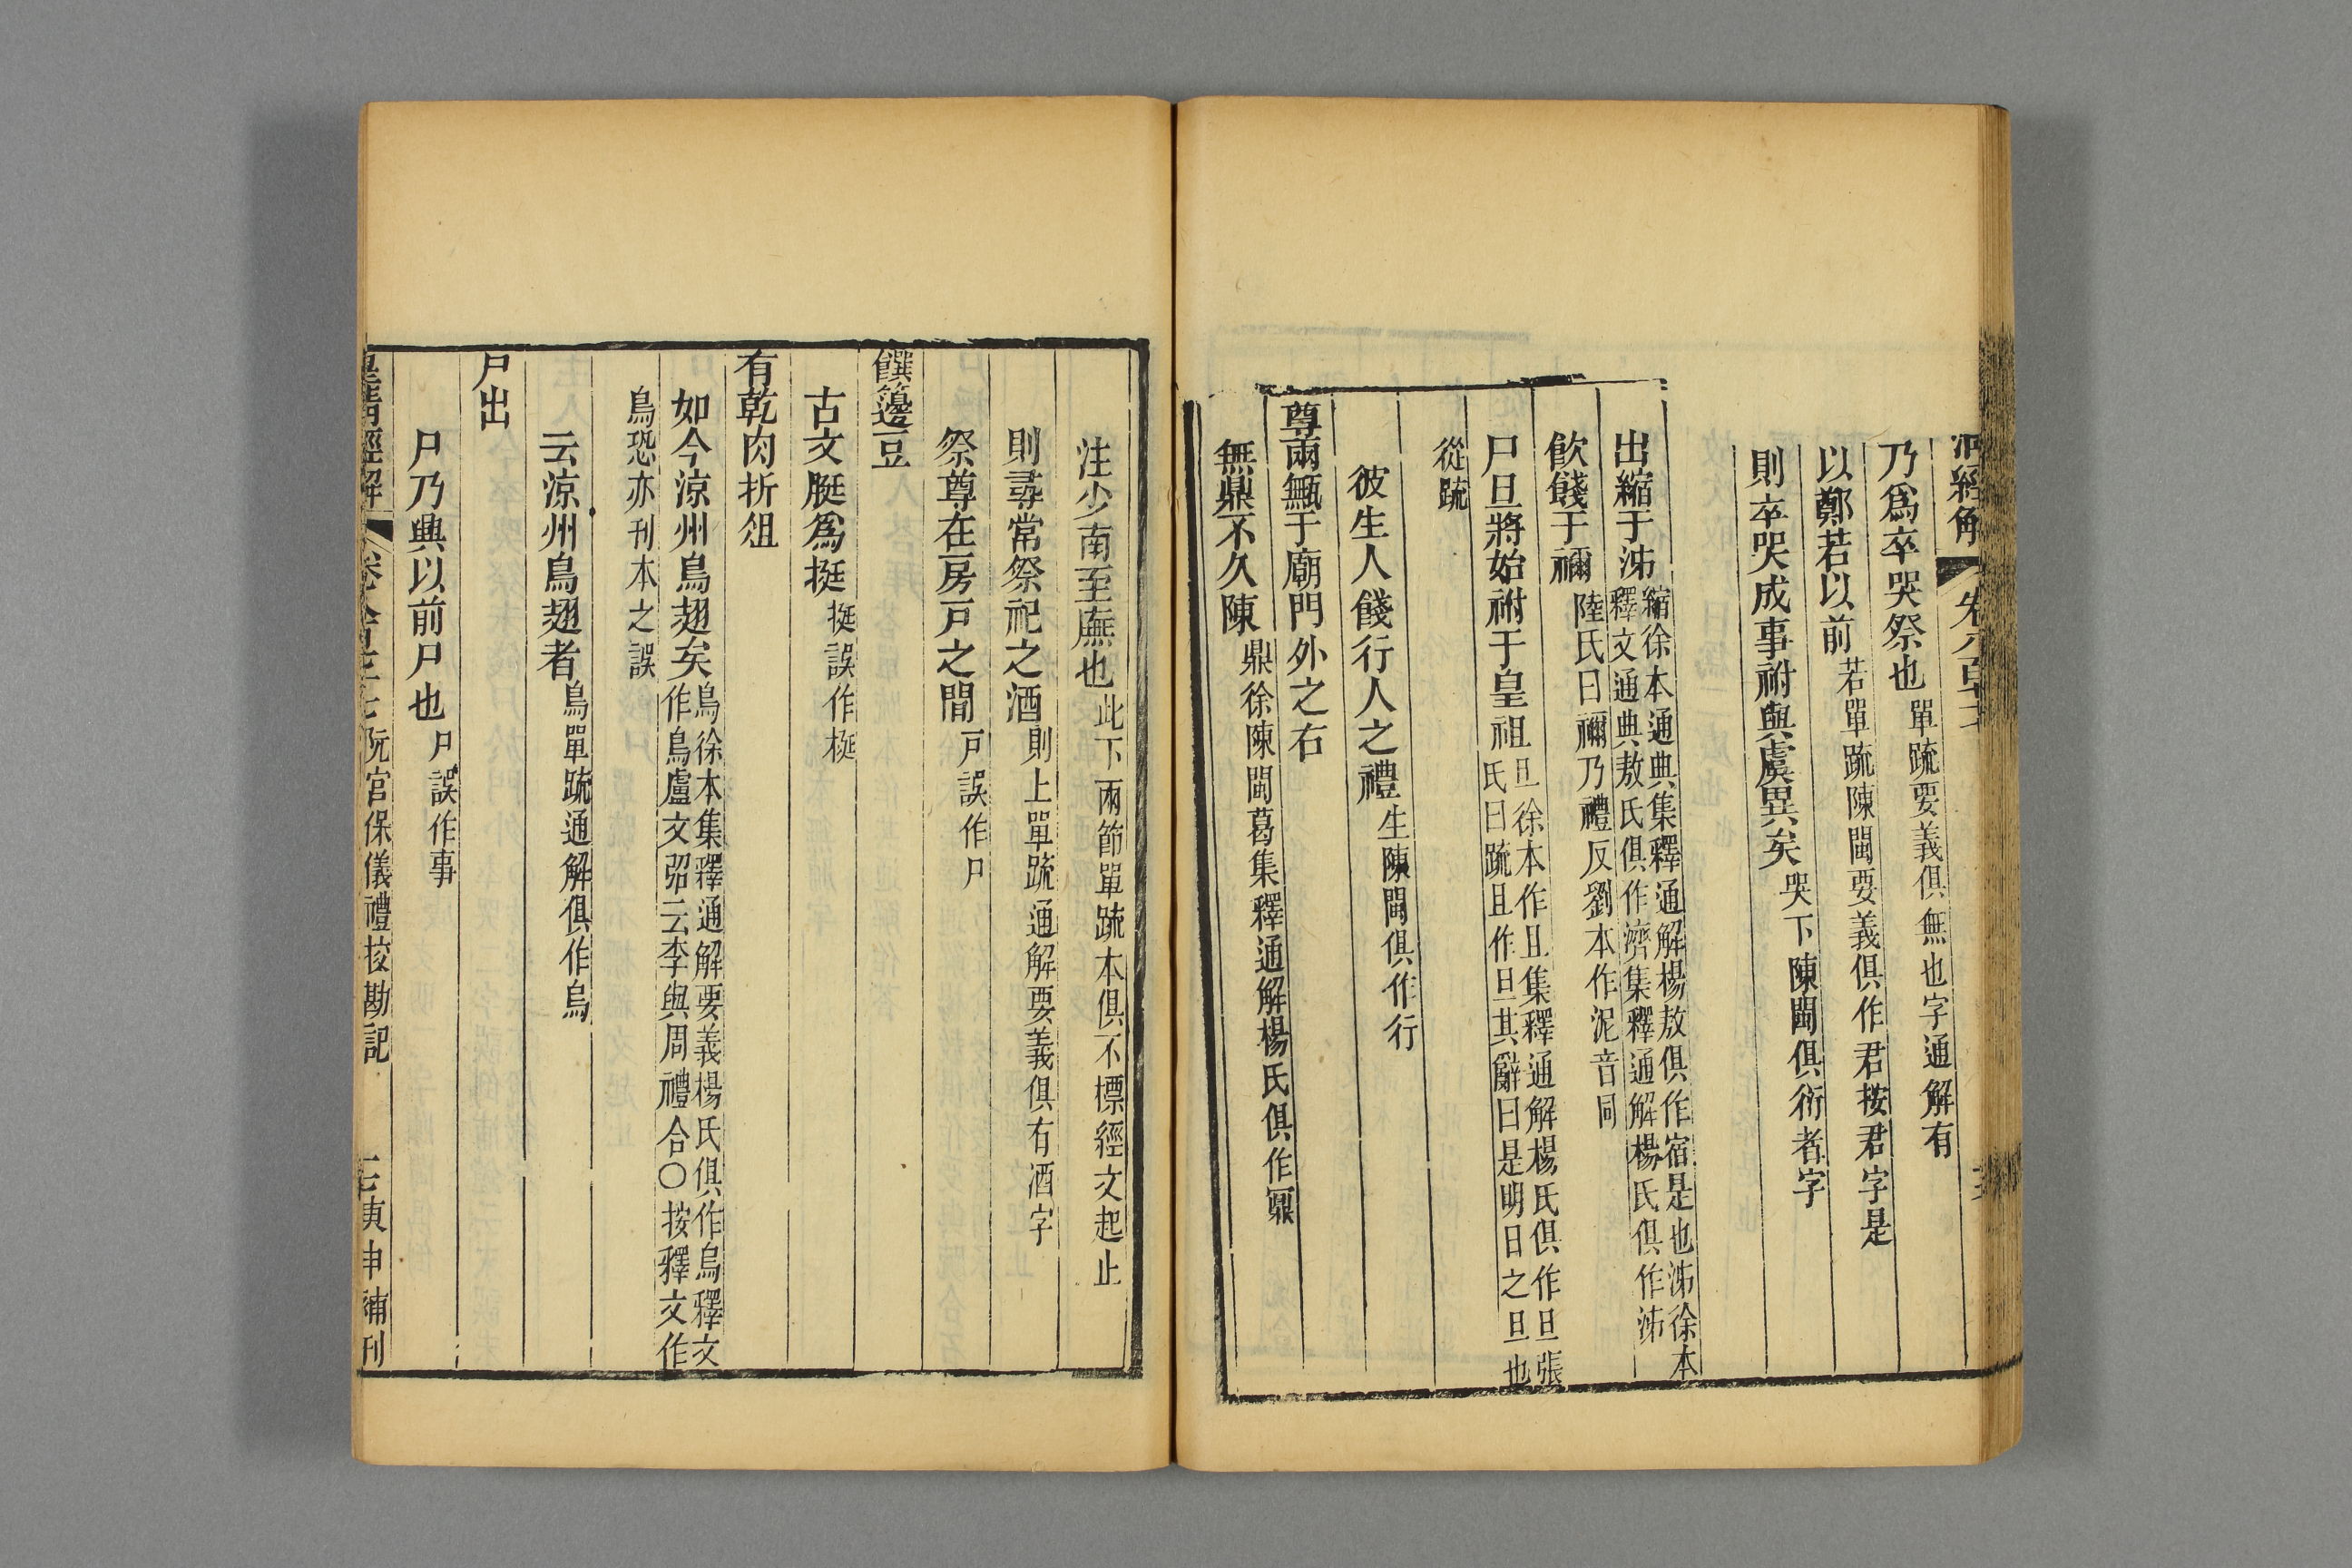 乃爲卒哭祭也單疏要義俱無也字通解有
以鄭若以前若單疏陳閩要義俱作君按君字是
則卒哭成事祔與虞異矣哭下陳閩俱衍者字
出縮于泲縮徐本通典集釋通解楊敖俱作宿是也泲徐本
釋文通典敖氏俱作濟集釋通解楊氏俱作泲
飲餞于禰陸氏曰禰乃禮反劉本作泥音同
尸旦將始祔于皇祖旦徐本作且集釋通解楊氏俱作旦張
氏曰疏且作旦其辭曰是明日之旦也
從疏
彼生人餞行人之禮生陳閩俱作行
尊兩甒于廟門外之右
無鼎不久陳鼎徐陳閩葛集釋通解楊氏俱作鼏
注少南至廡也此下兩節單疏本俱不標經文起止
則尋常祭祀之酒則上單疏通解要義俱有酒字
祭尊在房戸之間戸誤作尸
饌籩豆
古文脡爲挺挺誤作梃
有乾肉折俎
如今涼州鳥翅矣鳥徐本集釋通解要義楊氏俱作烏釋文
作鳥盧文弨云李與周禮合○按釋文作
鳥恐亦刊本之誤
云涼州鳥翅者鳥單疏通解俱作烏
尸出
尸乃興以前尸也尸誤作事
阮宮保儀禮挍勘記
庚申補刊